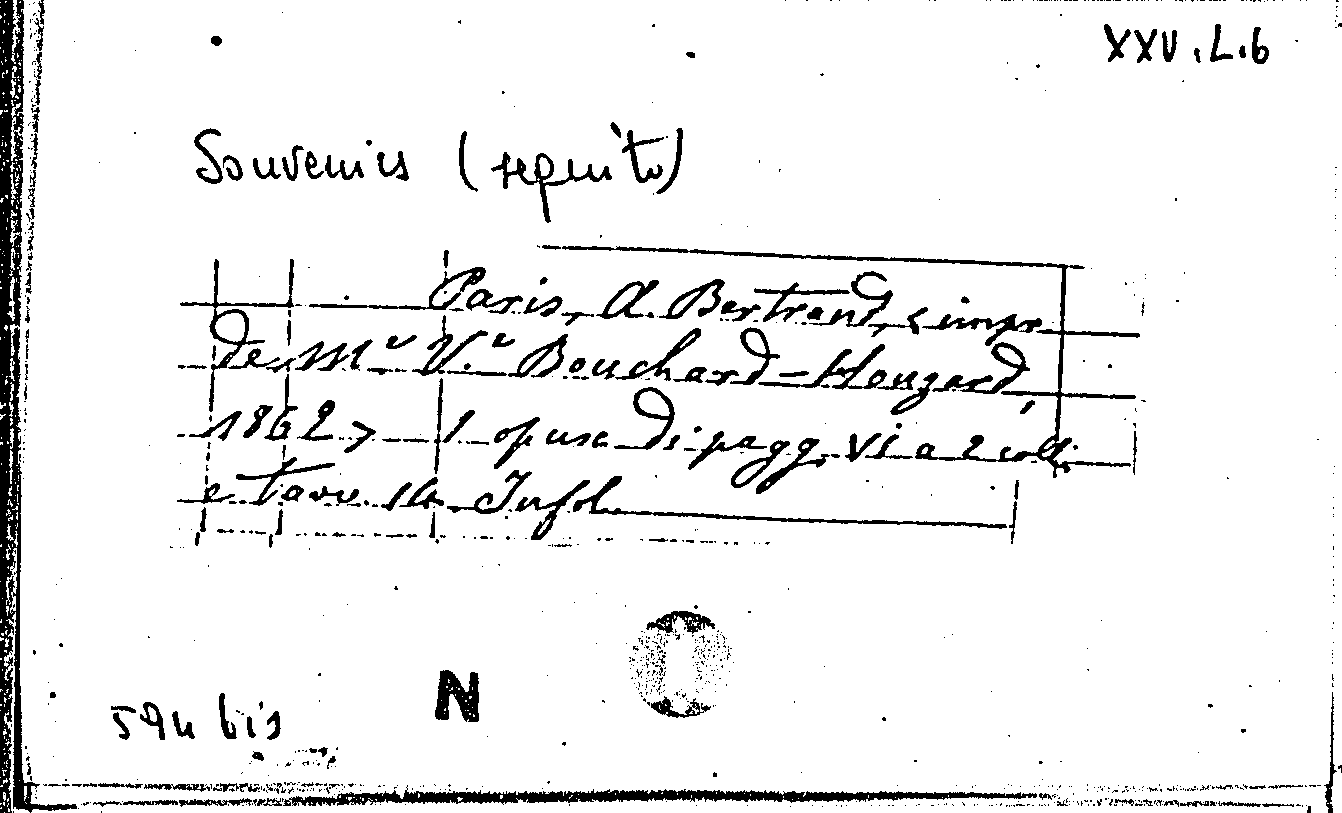 XXV.L.6
Souvenirs (seguito)
Paris, A. Bertrand, < impr
de Me Ve Bouchard-Houzard,
1862 > 1 opusc di pagg. VI a 2 coll.
e tavv. 14. In fol.
N
594 bis